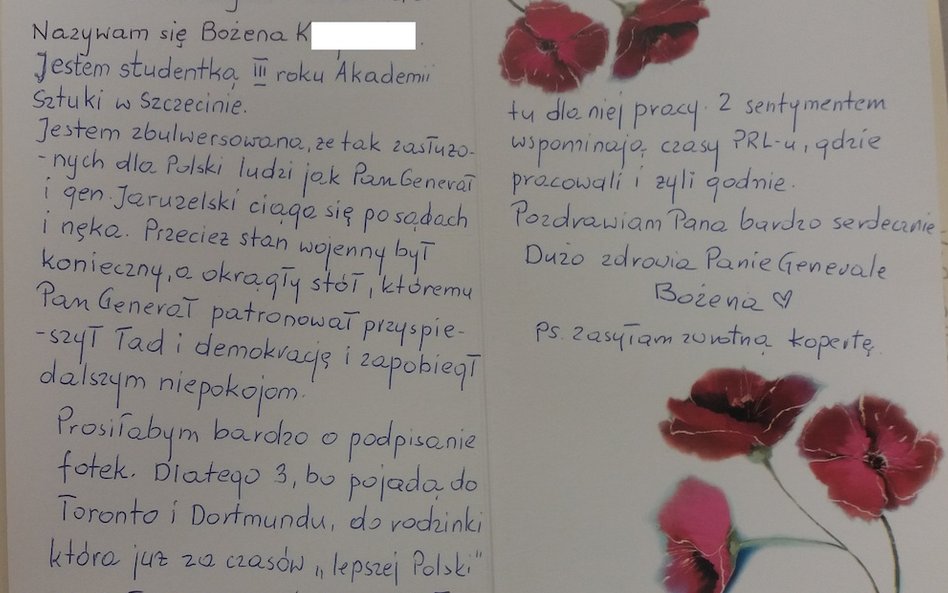 Nazywam się Bożena K
Jestem studentką III roku Akademii
Sztuki w Szczecinie.
Jestem zbulwersowana, że tak zasłużo-
-nych dla Polski ludzi jak Pan Generał
i gen. Jaruzelski ciąga się po sądach
i nęka. Przecież stan wojenny był
konieczny, a okrągły stół, któremu
Pan Generał patronował przyspie-
-szył ład i demokrację i zapobiegł
dalszym niepokojom.
Prosiłabym bardzo o podpisanie
fotek. Dlatego 3, bo pojadą do
Toronto i Dortmundu, do rodzinki
która już za czasów „lepszej Polski"
tu dla niej pracy. Z sentymentem
wspominają czasy PRL-u, gdzie
pracowali i żyli godnie.
Pozdrawiam Pana bardzo serdecznie
Dużo zdrowia Panie Generale
Bożena ♡
Ps. zasyłam zwrotną kopertę.